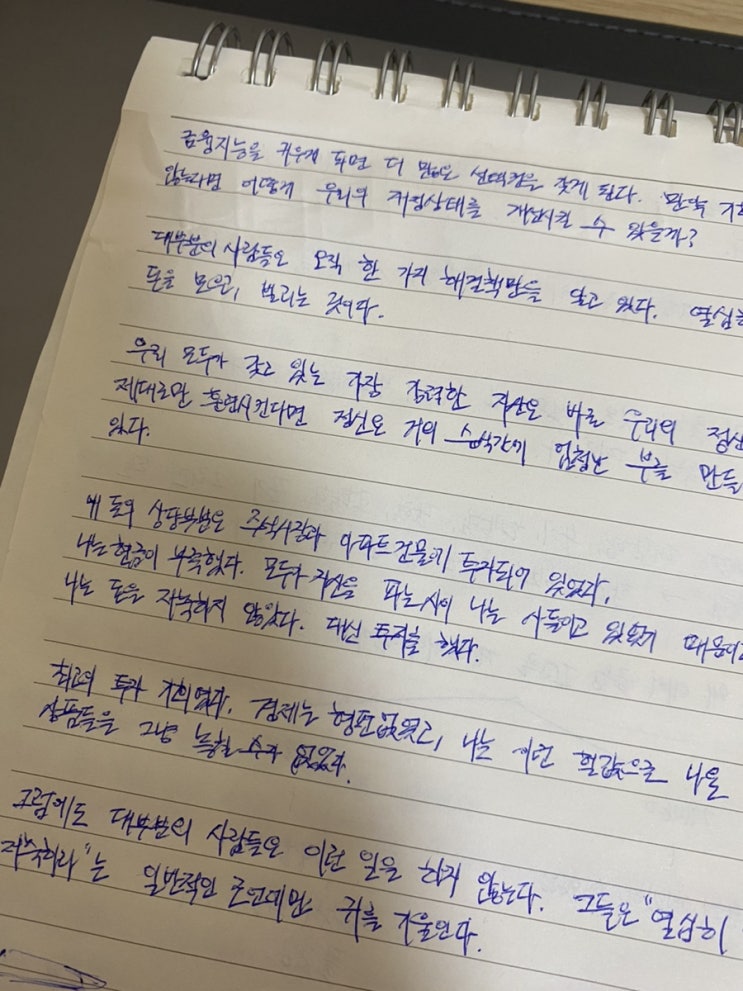 금융지능을 키우게 되면 더 많은 선택권을 갖게 된다. 만약 기회
않는다면 어떻게 우리의 재정상태를 개선시킬 수 있을까?
대부분의 사람들은 오직 한 가지 해결책만을 알고 있다. 열심히
돈을 모으고, 빌리는 것이다.
우리 모두가 갖고 있는 가장 강력한 자산은 바로 우리의 정신
제대로만 훈련시킨다면 정신은 거의 순식간에 엄청난 부를 만들
있다.
내 돈의 상당부분은 주식시장과 아파트 건물에 투자되어 있었다.
나는 현금이 부족했다. 모두가 자산을 파는 사이 나는 사들이고 있었기 때문이
나는 돈을 저축하지 않았다. 대신 투자를 했다.
최고의 투자 기회였다. 경제는 형편없었고, 나는 이런 헐값으로 나온
상품들을 그냥 놓칠 수가 없었다.
그럼에도 대부분의 사람들은 이런 일을 하지 않는다. 그들은 "열심히
저축하라"는 일반적인 조언에만 귀를 기울인다.